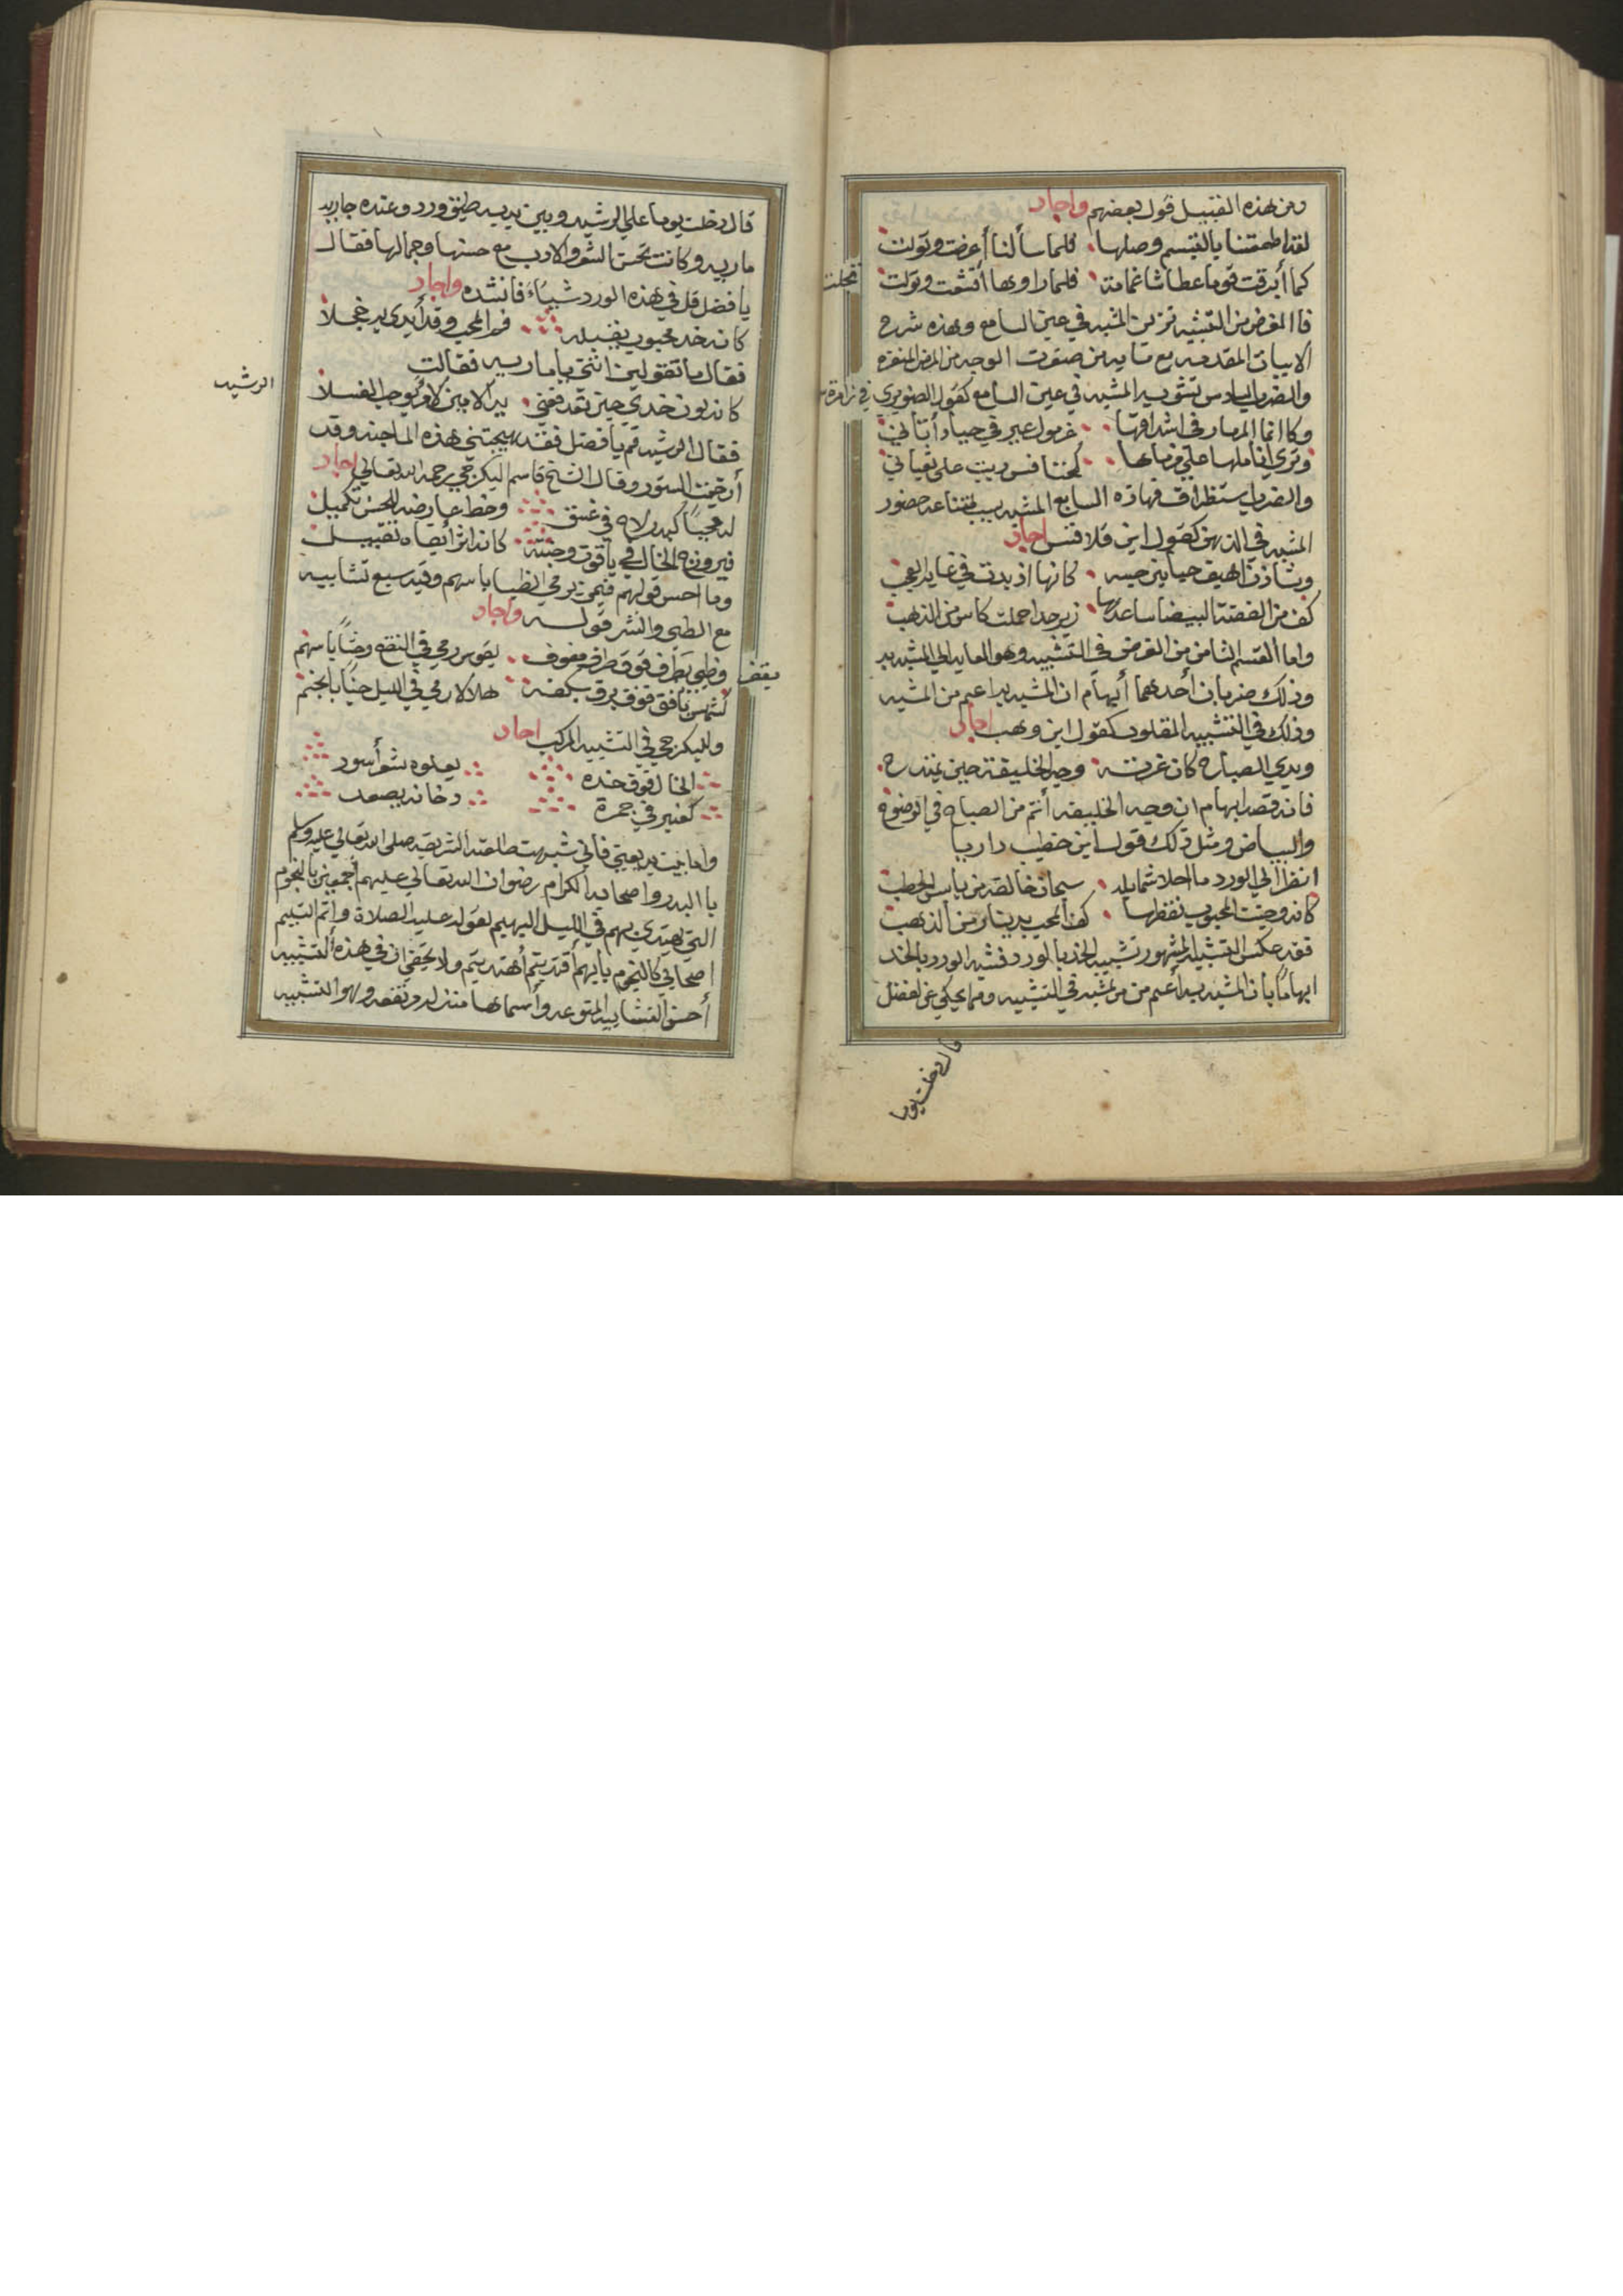 ومن هذه القبيل قول بعضهم واجاد
لقد اطمعتنا بالتبسم وصلها فلما سألنا أعرضت وتولت
كما أبرقت قوما عطاشا غمامة فلما راوها أقشعت وتولت
تجلت
فاالغرض من التشبيه تزيين المشبه في عين السامع وهذه شرح
الابيات المقدمه مع
والضرب السادس تشويه المشبه في عين السامع كقول الصنوبري في زامرة
وكاانما المزمار في اشداقها غرمول عير في حياء أتان
وترى أناملها علي مزمارها كخنافس دبت على ثعبان
والضرب استظراف فهاذه السابع المشبه بسبب امتناعه حضور
المشبه في الذهن كقول ابن قلاقس اجاد
كانها اذ بدت في غاية العجب
كف من الفضة البيضا ساعدها زبرجدا حملت كاس من الذهب
واما القسم الثامن من الغرض في التشبيه وهو العايد الي المشبه به
وذلك ضربان أحدهما أيهام ان المشبه به اعم من المشبه
وذلك في التشبيه المقلوب كقول ابن وهب اجاد
وبدي الصباح كان غرته وجه الخليفة حين يمتدح
فانه قصد ايهام ان وجه الخليفه أتم من الصباح في الوضوح
والبياض ومثل ذلك قول ابن خطيب داريا
انظر الي الورد ما احلا شمايله سبحان خالقه من يابس الحطب
كانه وجنت المحبوب نقطها كف المحب بدينار من الذهب
فقد عكس التشبيه المشهور تشبيه الخد بالورد فشبه الورد بالخد
ايهاما بان المشبه به أعم من مشبه في التشبيه ومما يحكي عن الفضل
قال دخلت يوما
قال دخلت يوما علي الرشيد وبين يديه طبق ورد وعنده جاريه
ماريه وكانت تحسن الشعر والادب مع حسنها وجمالها فقال
يا فضل قل في هذه الورد شيأ فانشده واجاد
كانه خد محبوب يقبله فم المحب وقد أبدي به خجلا
فقال ما تقولين انتي يا ماريه فقالت
الرشيد
كانه لون خدي حين تدفعني يد لامر يوجب الغسلا
فقال الرشيد قم يا فضل فقد هيجتني هذه الماجنه وقد
أرخيت الستور وقال الشيخ قاسم البكرجي رحمه الله تعالي اجاد
كبدر لاح في غسق وخط عارضه للحسن تكميل
فيروزج الخال في ياقوت وجنته كانه اثر أبقاه تقبيل
وما احسن قولهم فيمن يرمي الظبا باسهم وفيه سبع تشابيه
مع الطي والنشر قوله واجاد
وظبي بقفر فوق طرف مفوق بقوس رمي في النقع وحشا باسهم
بقفر
كشمس بافق فوق برق بكفه هلالا رمي في الليل جنا بانجم
وللبكرجي في التشبيه المركب اجاد
الخال فوق خده يعلوه شعر أسود
كعنبر في جمرة دخانه يصعد
واما بيت بديعيتي فاني شبهت طلعته الشريفه صلى الله تعالي عليه وسلم
باالبدر واصحابه الكرام رضوان الله تعالي عليهم أجمعين بالنجوم
التي يهتدي بهم في الليل البهيم لقوله عليه الصلاة وأتم التسليم
اصحابي كالنجوم بأيهم أقتديتم أهتديتم ولا يخفي ان في هذه التشبيه
أحسن التشابيه المتنوعه وأسماها منزله ورفعه وهو التشبيه